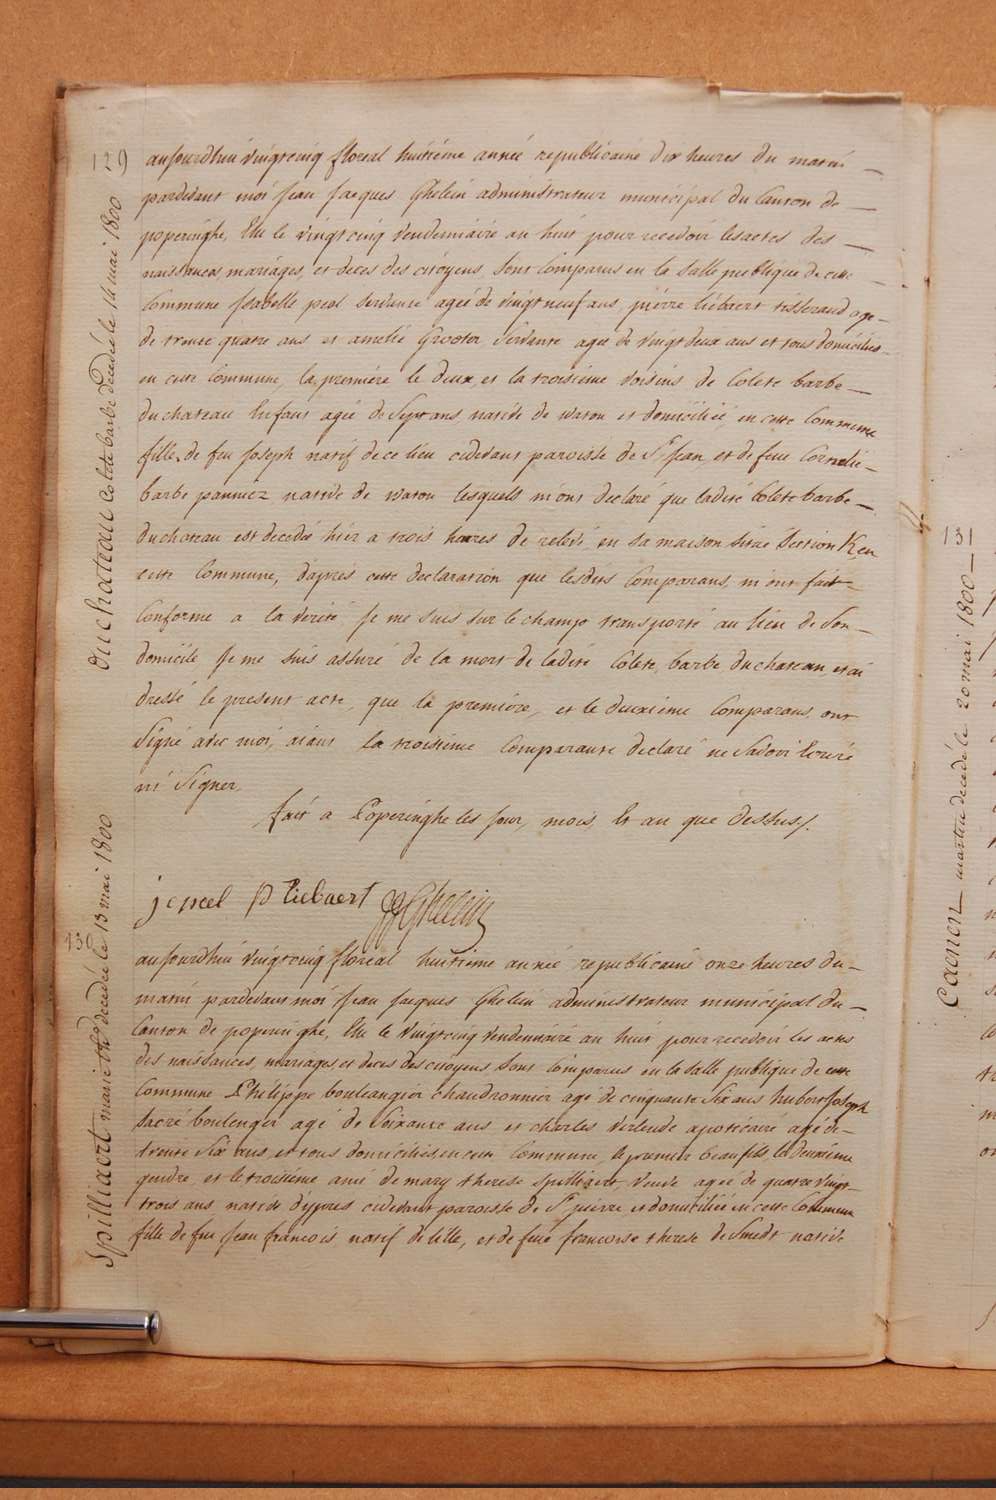 129
duchateau Colete barbe decedée le 14 mai 1800
aujourdhui vingtcinq floreal huitiême année republicaine dix heures du matin
pardevant moi Jean Jacques Ghelein administrateur municipal du Canton de
poperinghe, Elu le vingtcinq vendemiaire an huit pour recevoir les actes des
naissances, mariages, et deces des citoyens, sont Comparus en la salle publique de cette
Commune Isabelle peel servante ageé de vingtneuf ans, pierre liebaert tisserand age
de trente quatre ans et amelie Grooten servante agee de vingt deux ans et tous domiciliés
en cette Commune, la premiere le deux et la troisieme voisins de Colete barbe
duchateau Enfant ageé de Sept ans native de watou et domiciliée en cette Commune
fille de feu Joseph natif de ce lieu cidevant paroisse de St Jean, et de feue Cornelie
barbe native de watou lesquels m'ont declaré que ladite Colete barbe
duchateau est decedée hier a trois heures de relevé en sa maison située Section K en
cette Commune, d'après cette declaration que lesdits Comparans m'ont fait
Conforme a la verité Je me suis sur le champ transporté au lieu de Son
domicile Je me suis assuré de la mort de ladite Colete barbe duchateau et ai
dressé le present acte, que la premiere, et le deuxieme Comparans ont
Signé avec moi, aiant la troisieme Comparante declaré ne Savoir Ecrire
ni Signer,
fait a Poperinghe les jour, mois, Et an que dessus/.
j c peel P Liebaert JJGhelein
130
Spilliaert marie ths decedée le 13 mai 1800
aujourdhui vingtcinq floreal huitieme année republicaine onze heures du
matin pardevant moi Jean Jacques Ghelein administrateur municipal du
Canton de poperinghe, Elu le vingtcinq vendemiaire an huit pour recevoir les actes
des naissances, mariages, et deces des citoyens sont Comparus en la salle publique de cette
Commune Philippe boulangier chaudronnier agé de cinquante Six ans hubert Joseph
Sacré boulengér agé de Soixante ans et charles verlende apoticaire agé de
trente Six ans, et tous domiciliés en cette Commune, le premier beaufils le deuxieme
gendre, et le troisiéme ami de mary therese Spilliaert, veuve agee de quatre vingt
trois ans native d'ypres cidevant paroisse de St pierre, et domiciliée en cette Commune
fille de feu Jean francois natif de lille, et de feue francoise therese de Smedt native
131
Caenen martin decedé le 20 mai 1800